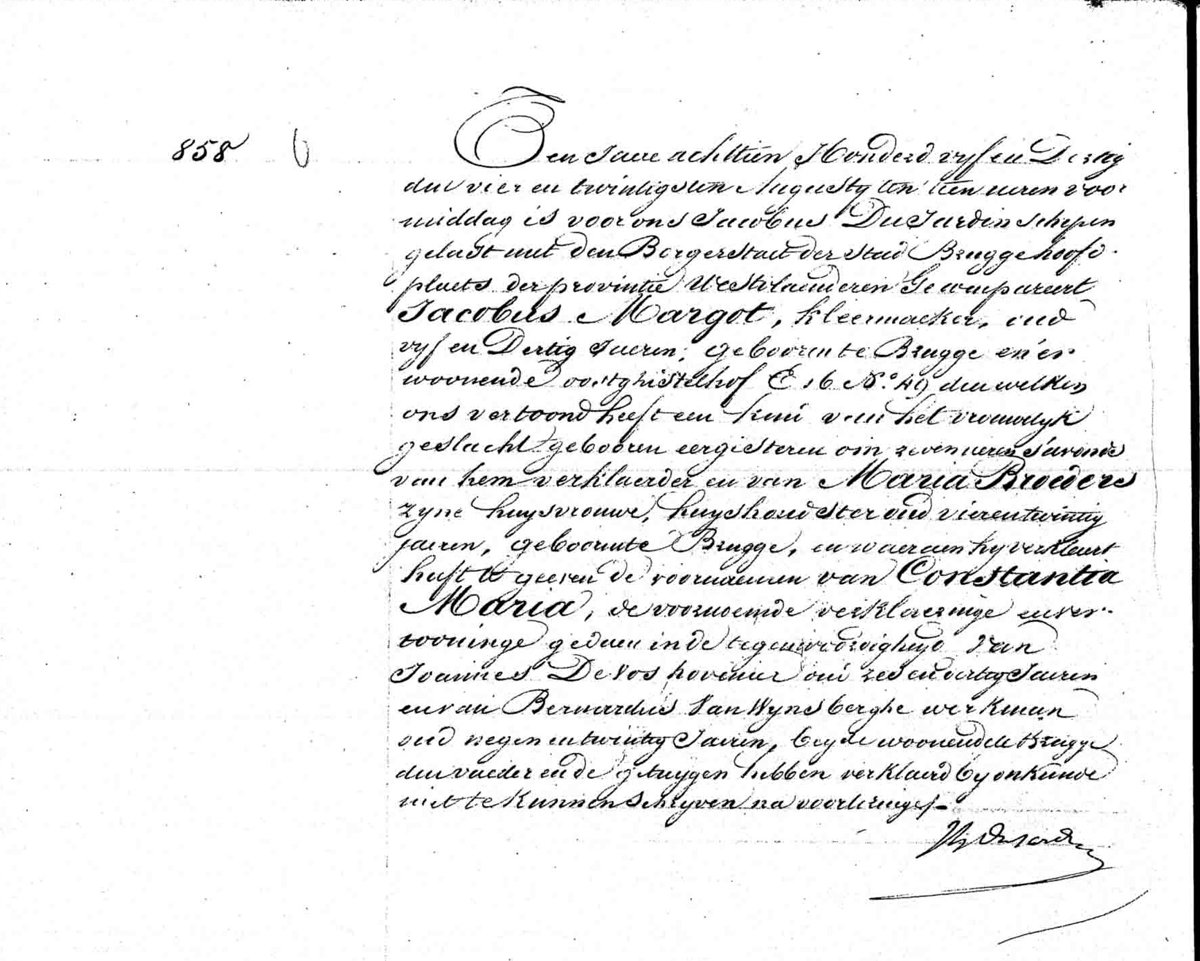 858
Den Jaere achttien Honderd vyf en Dertig
den vier en twintigsten Augusty ten tien ueren voor
middag is voor ons Jacobus DuJardin schepen
gelast met den Borgerstaet der stad Brugge hoofd-
plaets der provintie Westvlaenderen Gecompareert
Jacobus Margot, kleermaeker, oud
vyf en Dertig Jaeren, geboren te Brugge en er
woonende oostghistelhof E 16 N.º 49 den welken
ons vertoond heeft een kind van het vrouwelyk
geslacht gebooren eergisteren om zeven ueren s'avonds
van hem verklaerder en van Maria Broeders
zyne huysvrouwe, huyshoudster oud vierentwintig
jaeren, geboorente Brugge, en waeraen hy verklaert
heeft te geeven de voornaemen van Constantia
Maria, de voornoemde verklaeringe en ver-
tooninge gedaen in de tegenwoordigheyd van
Joannes De Vos hovenier oud zes en vertig Jaeren
en van Bernardus Van Wynsberghe werkman
oud negen en twintig Jaeren, beyde woonende te Brugge
den vaeder en de getuygen hebben verklaerd by onkunde
niet te kunnen schryven na voorlezinge